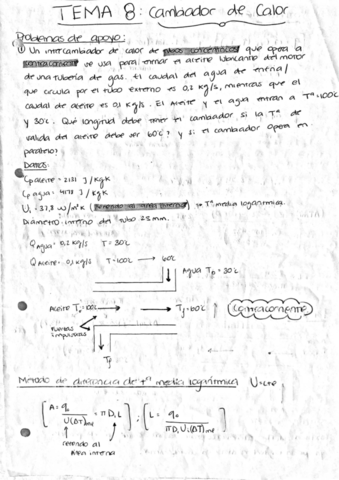 TEMA 8: Cambiador de Calor
Problemas de apoyo:
① Un intercambiador de calor de tubos concéntricos que opera a
contracorriente se usa para enfriar el aceite lubricante del motor
de una turbina de gas. El caudal del agua de
que circula por el tubo externo es 0,2 kg/s, mientras que el
caudal de aceite es 0,1 kg/s. El Aceite y el agua entran a Tª=100ºC
y 30ºC. Qué longitud debe tener el cambiador si la Tª de
salida del aceite debe ser 60ºC? y si el cambiador opera en
paralelo?
Datos:
Cp aceite = 2131 J/kgK
Cp agua = 4178 J/kgK
U = 37,8 W/m²K → Tª media logarítmica.
Diámetro interno del tubo 25mm.
Q Agua = 0,2 kg/s T = 30ºC
Q Aceite = 0,1 kg/s T = 100ºC → 60ºC
Agua T0 = 30ºC
Aceite T0 = 100ºC → Tf = 60ºC
Contracorriente
Tf
Método de diferencia de tª media logarítmica U=cte
[A = q0 / U(ΔT)mL = πD, L] ; [L = q0 / πD, U, (ΔT)mL]
referido al
área interna